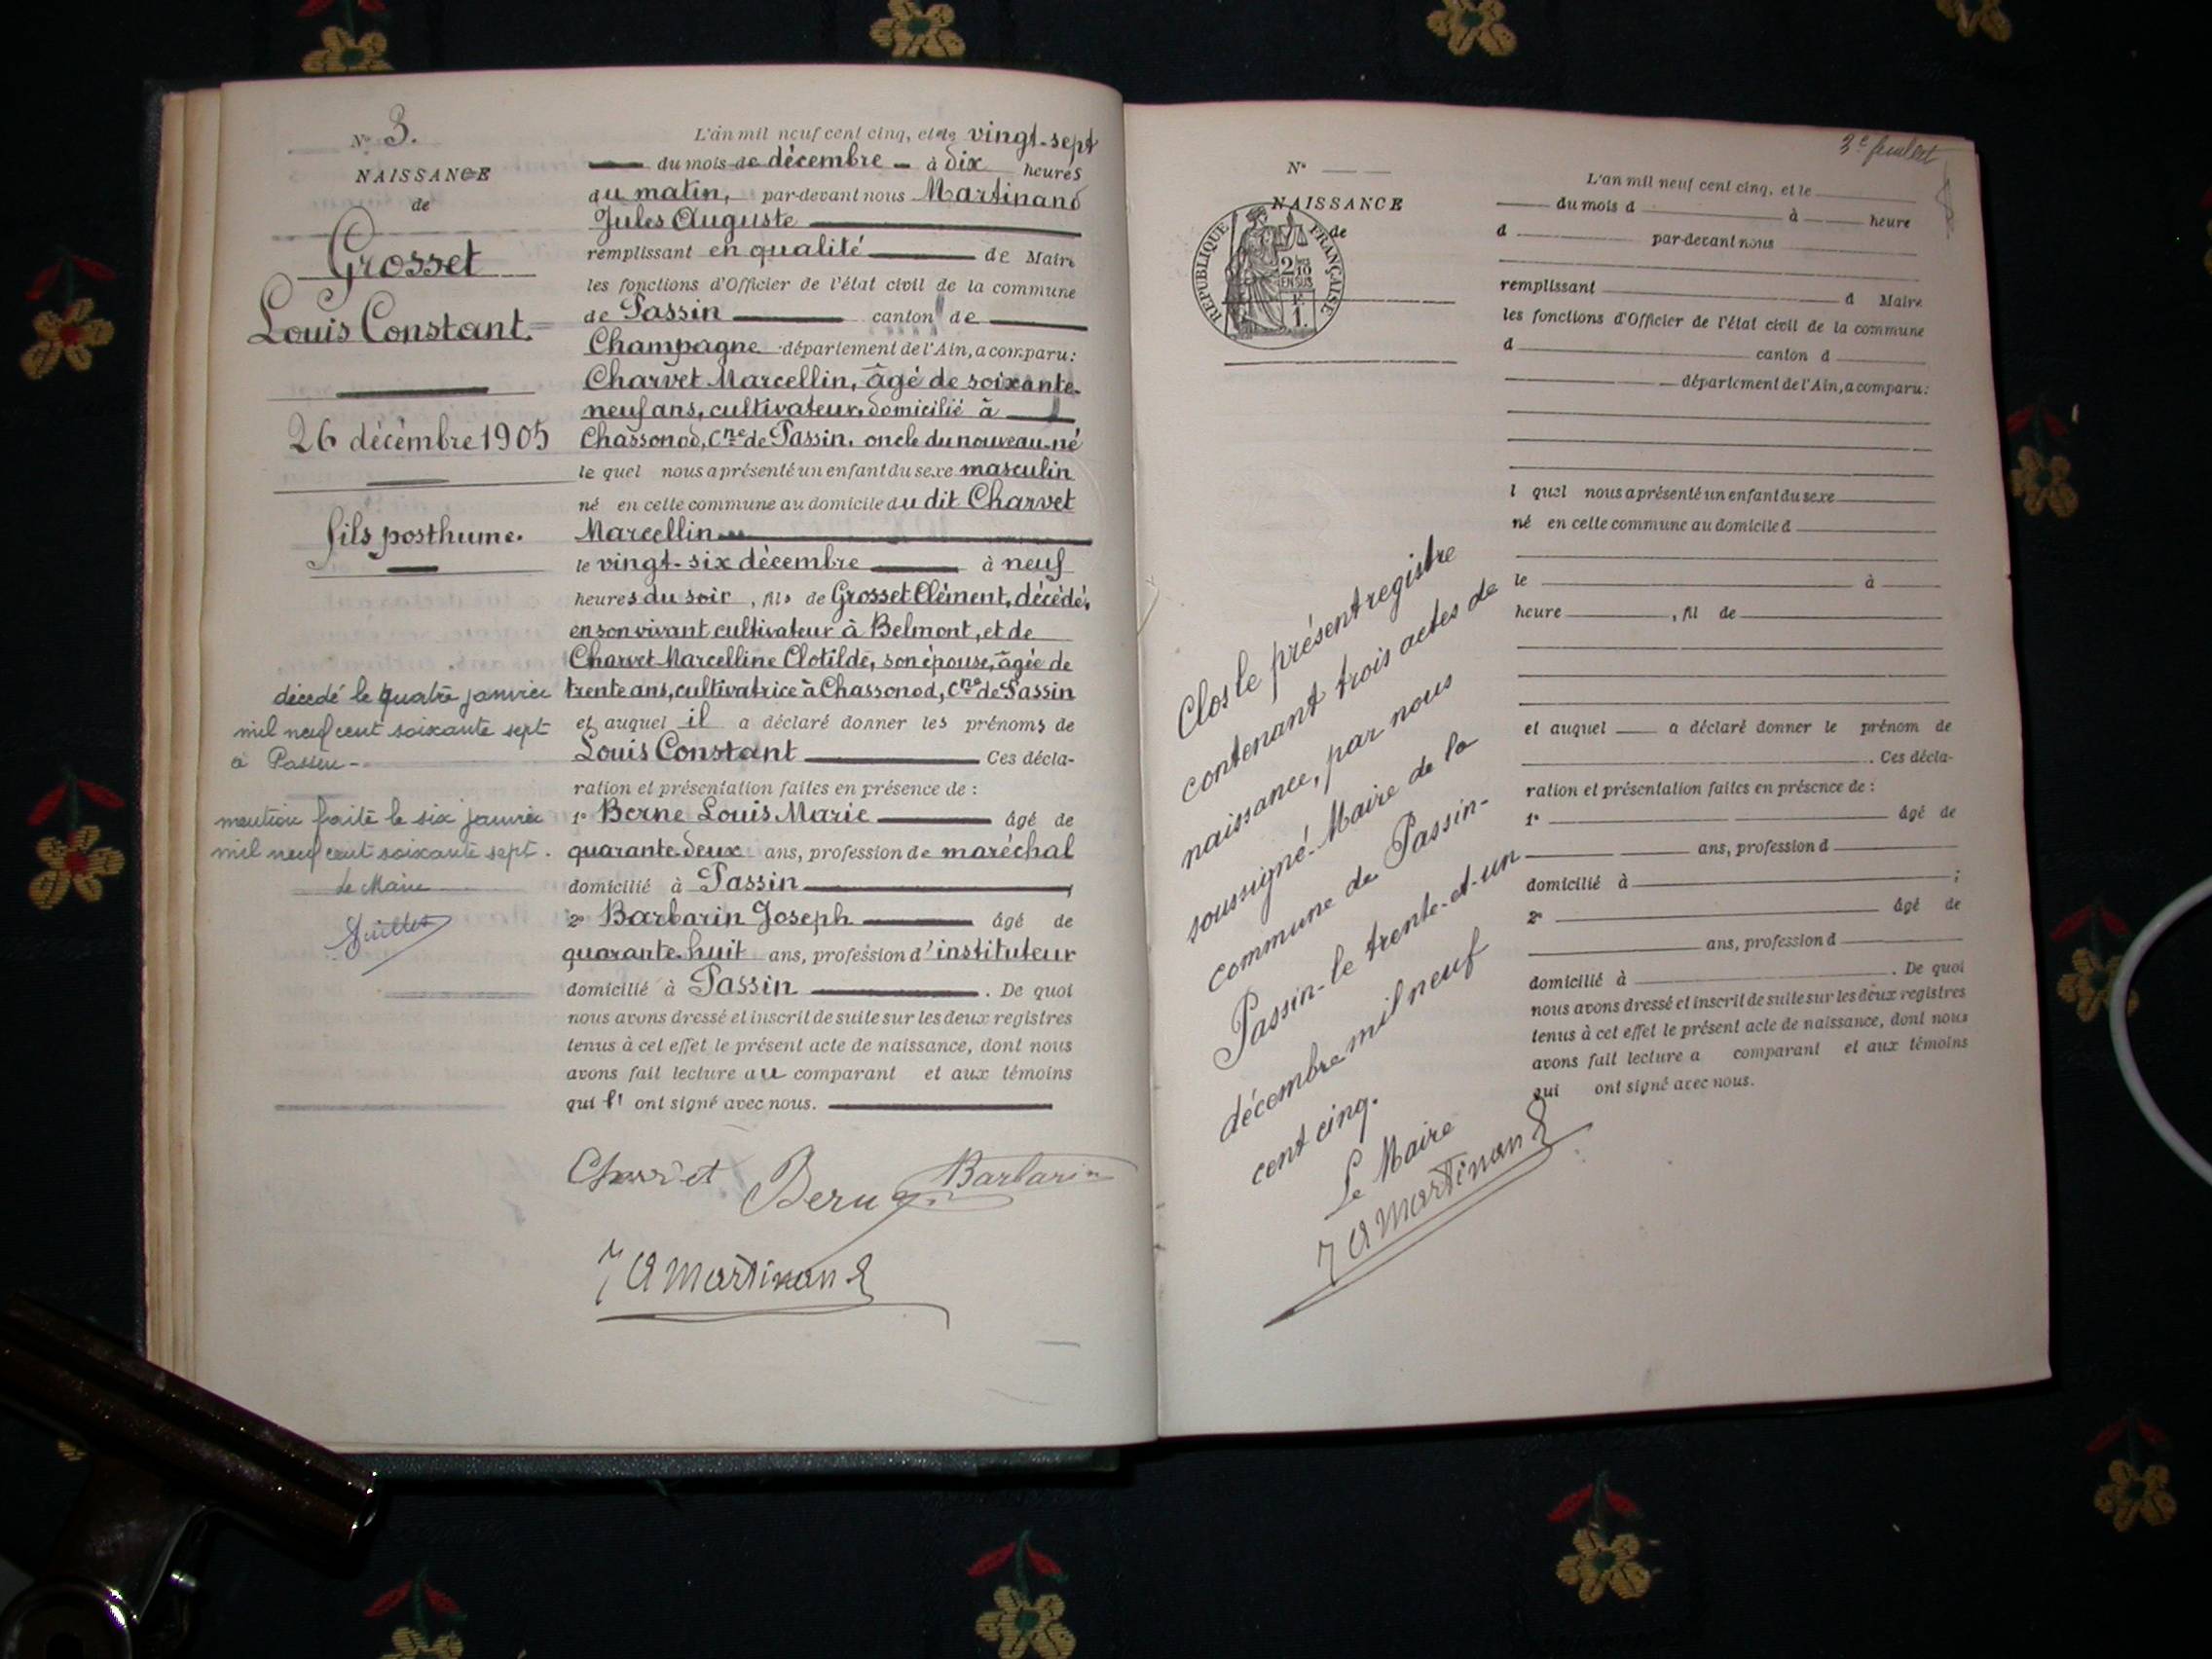 N° 3.
NAISSANCE
de
Grosset
Louis Constant.
26 décembre 1905
fils posthume.
décédé le quatre janvier
mil neuf cent soixante sept
à Passin -
mention faite le six janvier
mil neuf cent soixante sept.
Le Maire
L'an mil neuf cent cinq, et le vingt-sept
du mois de décembre à dix heures
du matin, par-devant nous Martinand
Jules Auguste
remplissant en qualité de Maire
les fonctions d'Officier de l'état civil de la commune
de Passin canton de
Champagne département de l'Ain, a comparu:
Charvet Marcellin, âgé de soixante-
neuf ans, cultivateur, domicilié à
Chassonod, Cne de Passin, oncle du nouveau-né
le quel nous a présenté un enfant du sexe masculin
né en cette commune au domicile du dit Charvet
Marcellin
le vingt-six décembre à neuf
heures du soir, fils de Grosset Clément, décédé,
en son vivant cultivateur à Belmont, et de
Charvet Marcelline Clotilde, son épouse, âgée de
trente ans, cultivatrice à Chassonod, Cne de Passin
et auquel il a déclaré donner les prénoms de
Louis Constant Ces décla-
ration et présentation faites en présence de :
1° Berne Louis Marie âgé de
quarante-deux ans, profession de maréchal
domicilié à Passin ;
2° Barbarin Joseph âgé de
quarante-huit ans, profession d'instituteur
domicilié à Passin . De quoi
nous avons dressé et inscrit de suite sur les deux registres
tenus à cet effet le présent acte de naissance, dont nous
avons fait lecture au comparant et aux témoins
qui ont signé avec nous.
Charvet Berne Barbarin
J A Martinand
3e feuillet
N°
NAISSANCE
de
RÉPUBLIQUE FRANÇAISE
2/10 EN SUS
1f.
Clos le présent registre
contenant trois actes de
naissance, par nous
soussigné Maire de la
commune de Passin-
Passin-le trente-et-un
décembre mil neuf
cent cinq.
Le Maire
J A Martinand
L'an mil neuf cent cinq, et le
du mois d à heure
d par-devant nous
remplissant d Maire
les fonctions d'Officier de l'état civil de la commune
d canton d
département de l'Ain, a comparu:
l quel nous a présenté un enfant du sexe
né en cette commune au domicile d
le à
heure , fil de
et auquel a déclaré donner le prénom de
. Ces décla-
ration et présentation faites en présence de :
1° âgé de
ans, profession d
domicilié à ;
2° âgé de
ans, profession d
domicilié à . De quoi
nous avons dressé et inscrit de suite sur les deux registres
tenus à cet effet le présent acte de naissance, dont nous
avons fait lecture a comparant et aux témoins
qui ont signé avec nous.